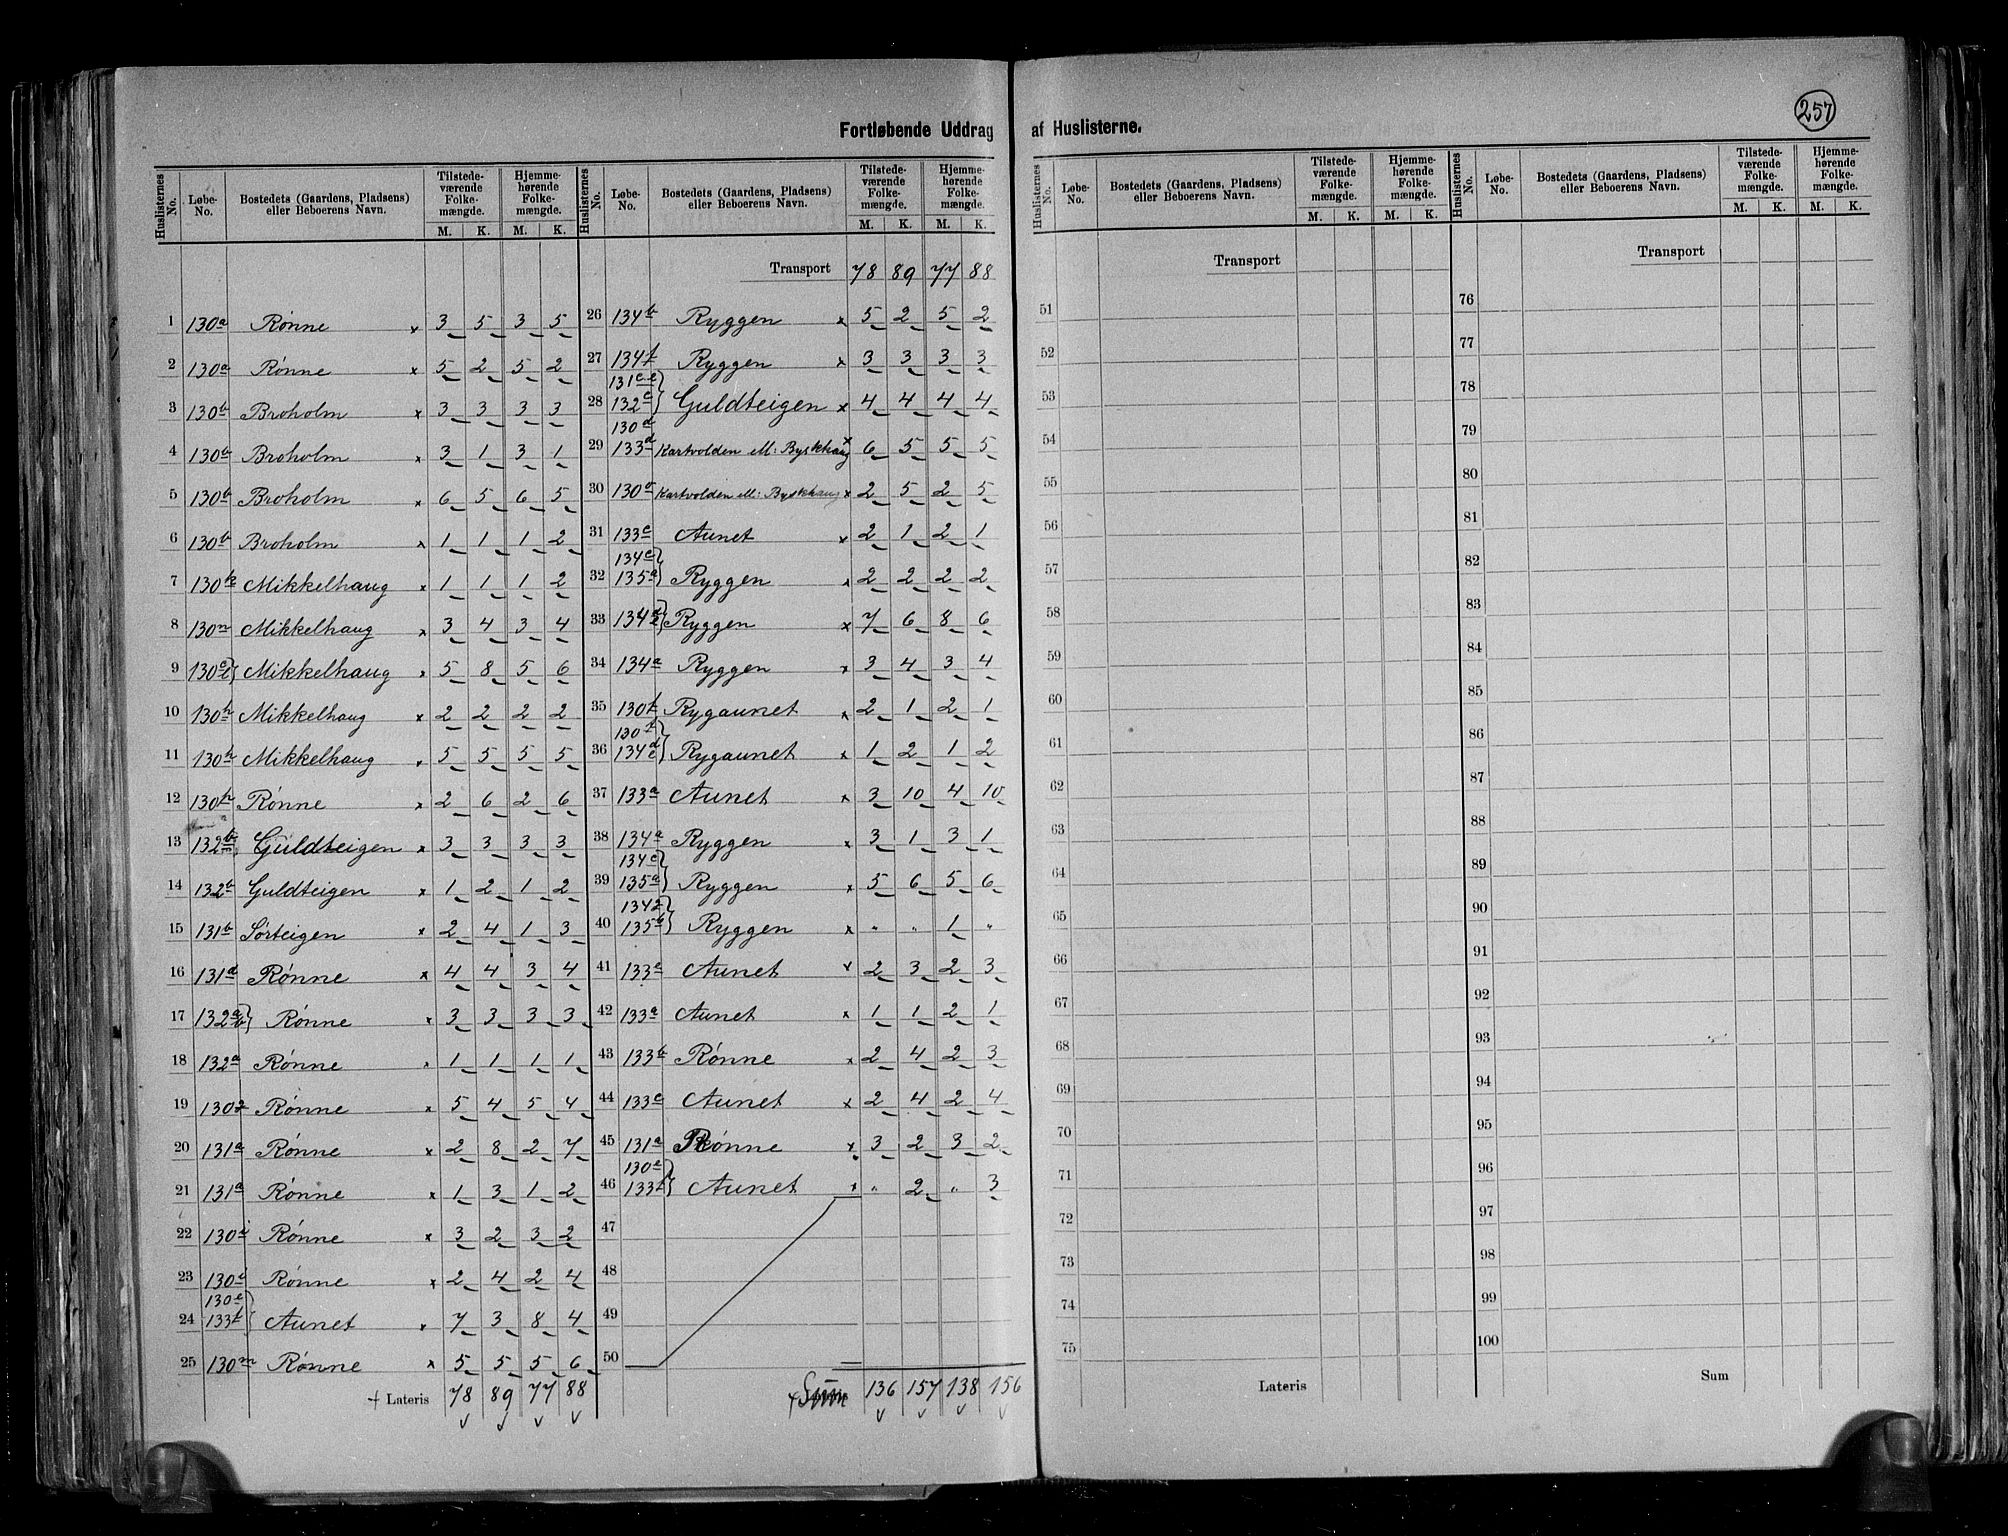 257
Fortløbende Uddrag af Huslisterne.
Huslisternes No. Løbe-No. Bostedets (Gaardens, Pladsens) eller Beboerens Navn. Tilstedeværende Folkemængde. M. K. Hjemmehørende Folkemængde. M. K.
1 130a Rønne x 3 5 3 5
2 130a Rønne x 5 2 5 2
3 130b Broholm x 3 3 3 3
4 130b Broholm x 3 1 3 1
5 130b Broholm x 6 5 6 5
6 130b Broholm x 1 1 1 2
7 130k Mikkelhaug x 1 1 1 2
8 130n Mikkelhaug x 3 4 3 4
9 130 Mikkelhaug x 5 8 5 6
10 130h Mikkelhaug x 2 2 2 2
11 130h Mikkelhaug x 5 5 5 5
12 130h Rønne x 2 6 2 6
13 132b Guldteigen x 3 3 3 3
14 132b Guldteigen x 1 2 1 2
15 131b Sørteigen x 2 4 1 3
16 131d Rønne x 4 4 3 4
17 132a b } Rønne x 3 3 3 3
18 132a Rønne x 1 1 1 1
19 130g Rønne x 5 4 5 4
20 131a Rønne x 2 8 2 7
21 131a Rønne x 1 3 1 2
22 130i Rønne x 3 2 3 2
23 130i Rønne x 2 4 2 4
130e
24 133f } Aunet x 7 3 8 4
25 130m Rønne x 5 5 5 6
Lateris 78 89 77 88
Huslisternes No. Løbe-No. Bostedets (Gaardens, Pladsens) eller Beboerens Navn. Tilstedeværende Folkemængde. M. K. Hjemmehørende Folkemængde. M. K.
Transport 78 89 77 88
26 134b Ryggen x 5 2 5 2
27 134f Ryggen x 3 3 3 3
131c e
28 132c } Guldteigen x 4 4 4 4
130d
29 133d Kartvolden M: Byskhaug x 6 5 5 5
30 130 Kartvolden M: Byskhaug x 2 5 2 5
31 133c Aunet x 2 1 2 1
134c
32 135a } Ryggen x 2 2 2 2
33 134 } Ryggen x 7 6 8 6
34 134a Ryggen x 3 4 3 4
35 130f Rygaunet x 2 1 2 1
130f
36 134d e } Rygaunet x 1 2 1 2
37 133a Aunet x 3 10 4 10
38 134a Ryggen x 3 1 3 1
134c
39 135a } Ryggen x 5 6 5 6
134g
40 135b } Ryggen x " " 1 "
41 133e Aunet x 2 3 2 3
42 133a Aunet x 1 1 2 1
43 133b Rønne x 2 4 2 3
44 133c Aunet x 2 4 2 4
45 131a Rønne x 3 2 3 2
130e
46 133f } Aunet x " 2 " 3
47
48
49
50
Sum 136 157 138 156
Huslisternes No. Løbe-No. Bostedets (Gaardens, Pladsens) eller Beboerens Navn. Tilstedeværende Folkemængde. M. K. Hjemmehørende Folkemængde. M. K.
Transport
51
52
53
54
55
56
57
58
59
60
61
62
63
64
65
66
67
68
69
70
71
72
73
74
75
Lateris
Huslisternes No. Løbe-No. Bostedets (Gaardens, Pladsens) eller Beboerens Navn. Tilstedeværende Folkemængde. M. K. Hjemmehørende Folkemængde. M. K.
Transport
76
77
78
79
80
81
82
83
84
85
86
87
88
89
90
91
92
93
94
95
96
97
98
99
100
Sum